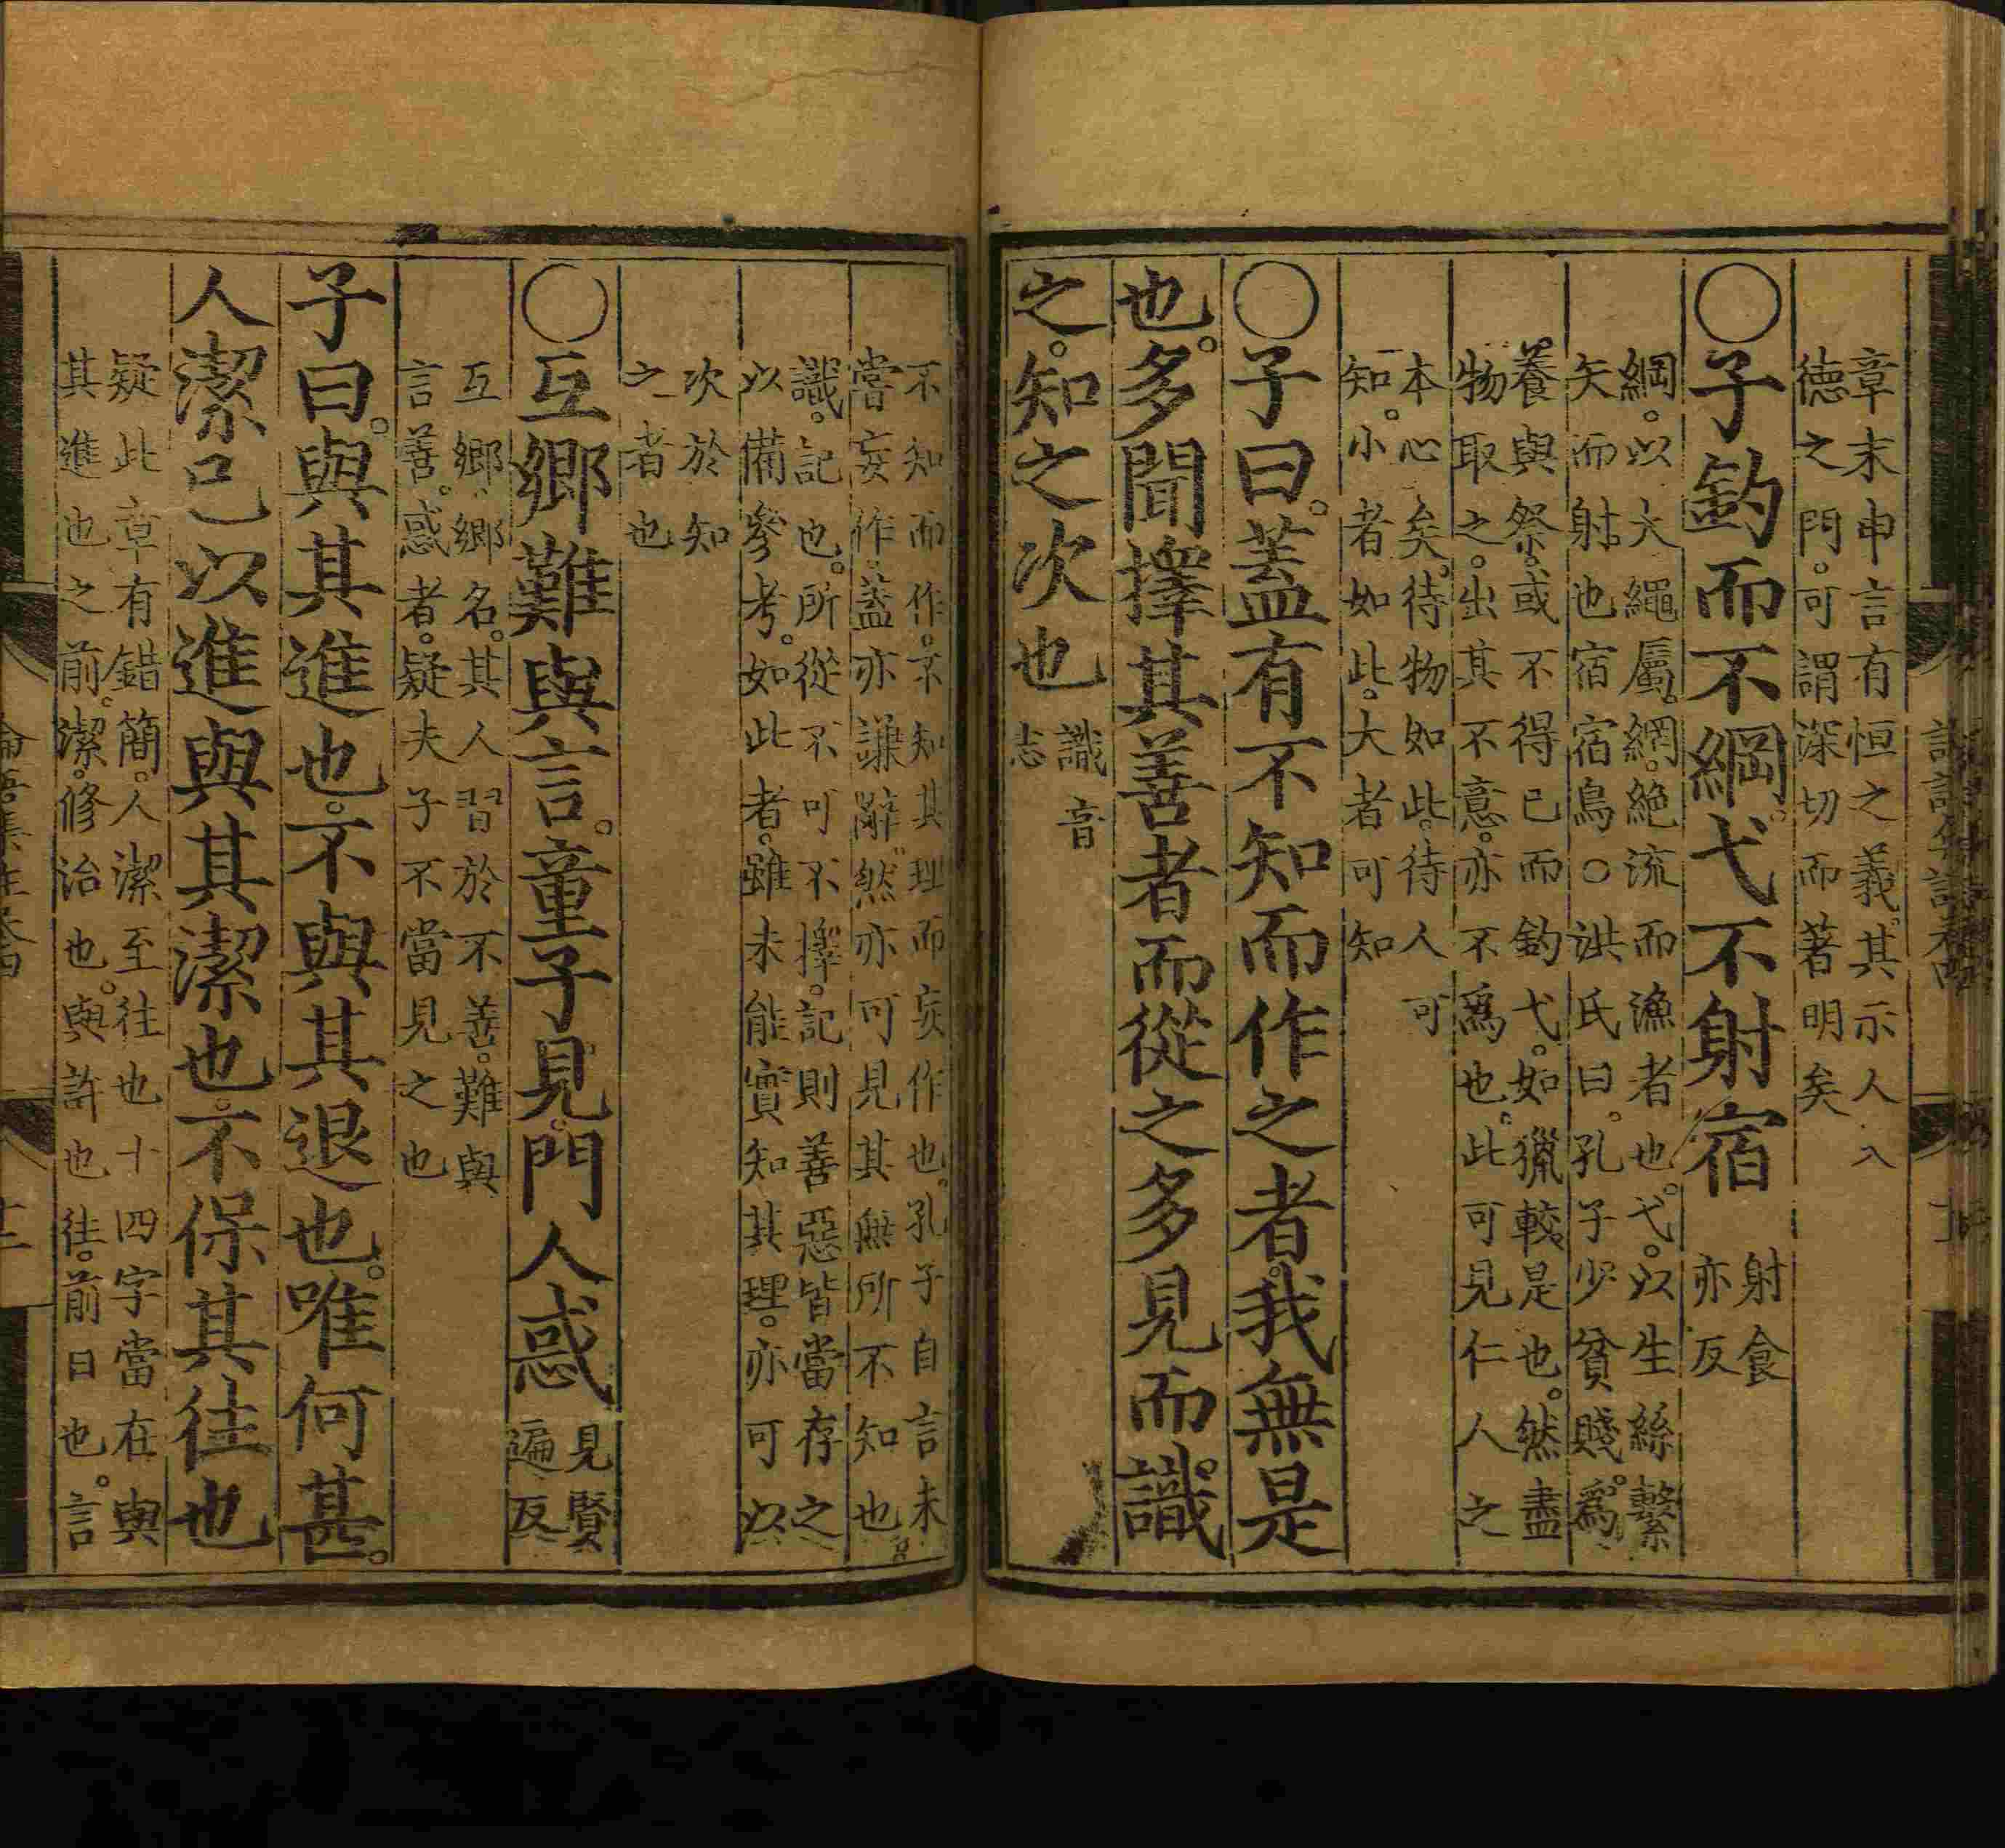 章末申言有恒之義。其示人入
德之門。可謂深切而著明矣
○子釣而不綱。弋不射宿
射食
亦反
綱。以大繩屬。網。絶流而漁者也。弋。以生絲繫
矢而射也宿宿鳥○洪氏曰。孔子少貧賤。爲
養與祭。或不得已而釣弋。如獵較是也。然盡
物取之。出其不意。亦不爲也。此可見仁人之
本心矣。待物如此。待人可
知。小者如此。大者可知
○子曰。蓋有不知而作之者。我無是
也。多聞擇其善者而從之多見而識。
之。知之次也
識音
志
不知而作。不知其理而妄作也。孔子自言未
嘗妄作。蓋亦謙辭。然亦可見其無所不知也。
識。記也。所從不可不擇。記則善惡皆當存之
以備參考。如此者。雖未能實知其理。亦可以
次於知
之者也
○互鄉難與言。童子見。門人惑
見賢
遍反
互鄉鄉名。其人習於不善。難與
言善。惑者。疑夫子不當見之也
子曰。與其進也。不與其退也。唯何甚。
人潔己以進與其潔也。不保其往也
疑此章有錯簡。人潔至往也十四字當在與
其進也之前。潔。修治也。與。許也往。前日也。言